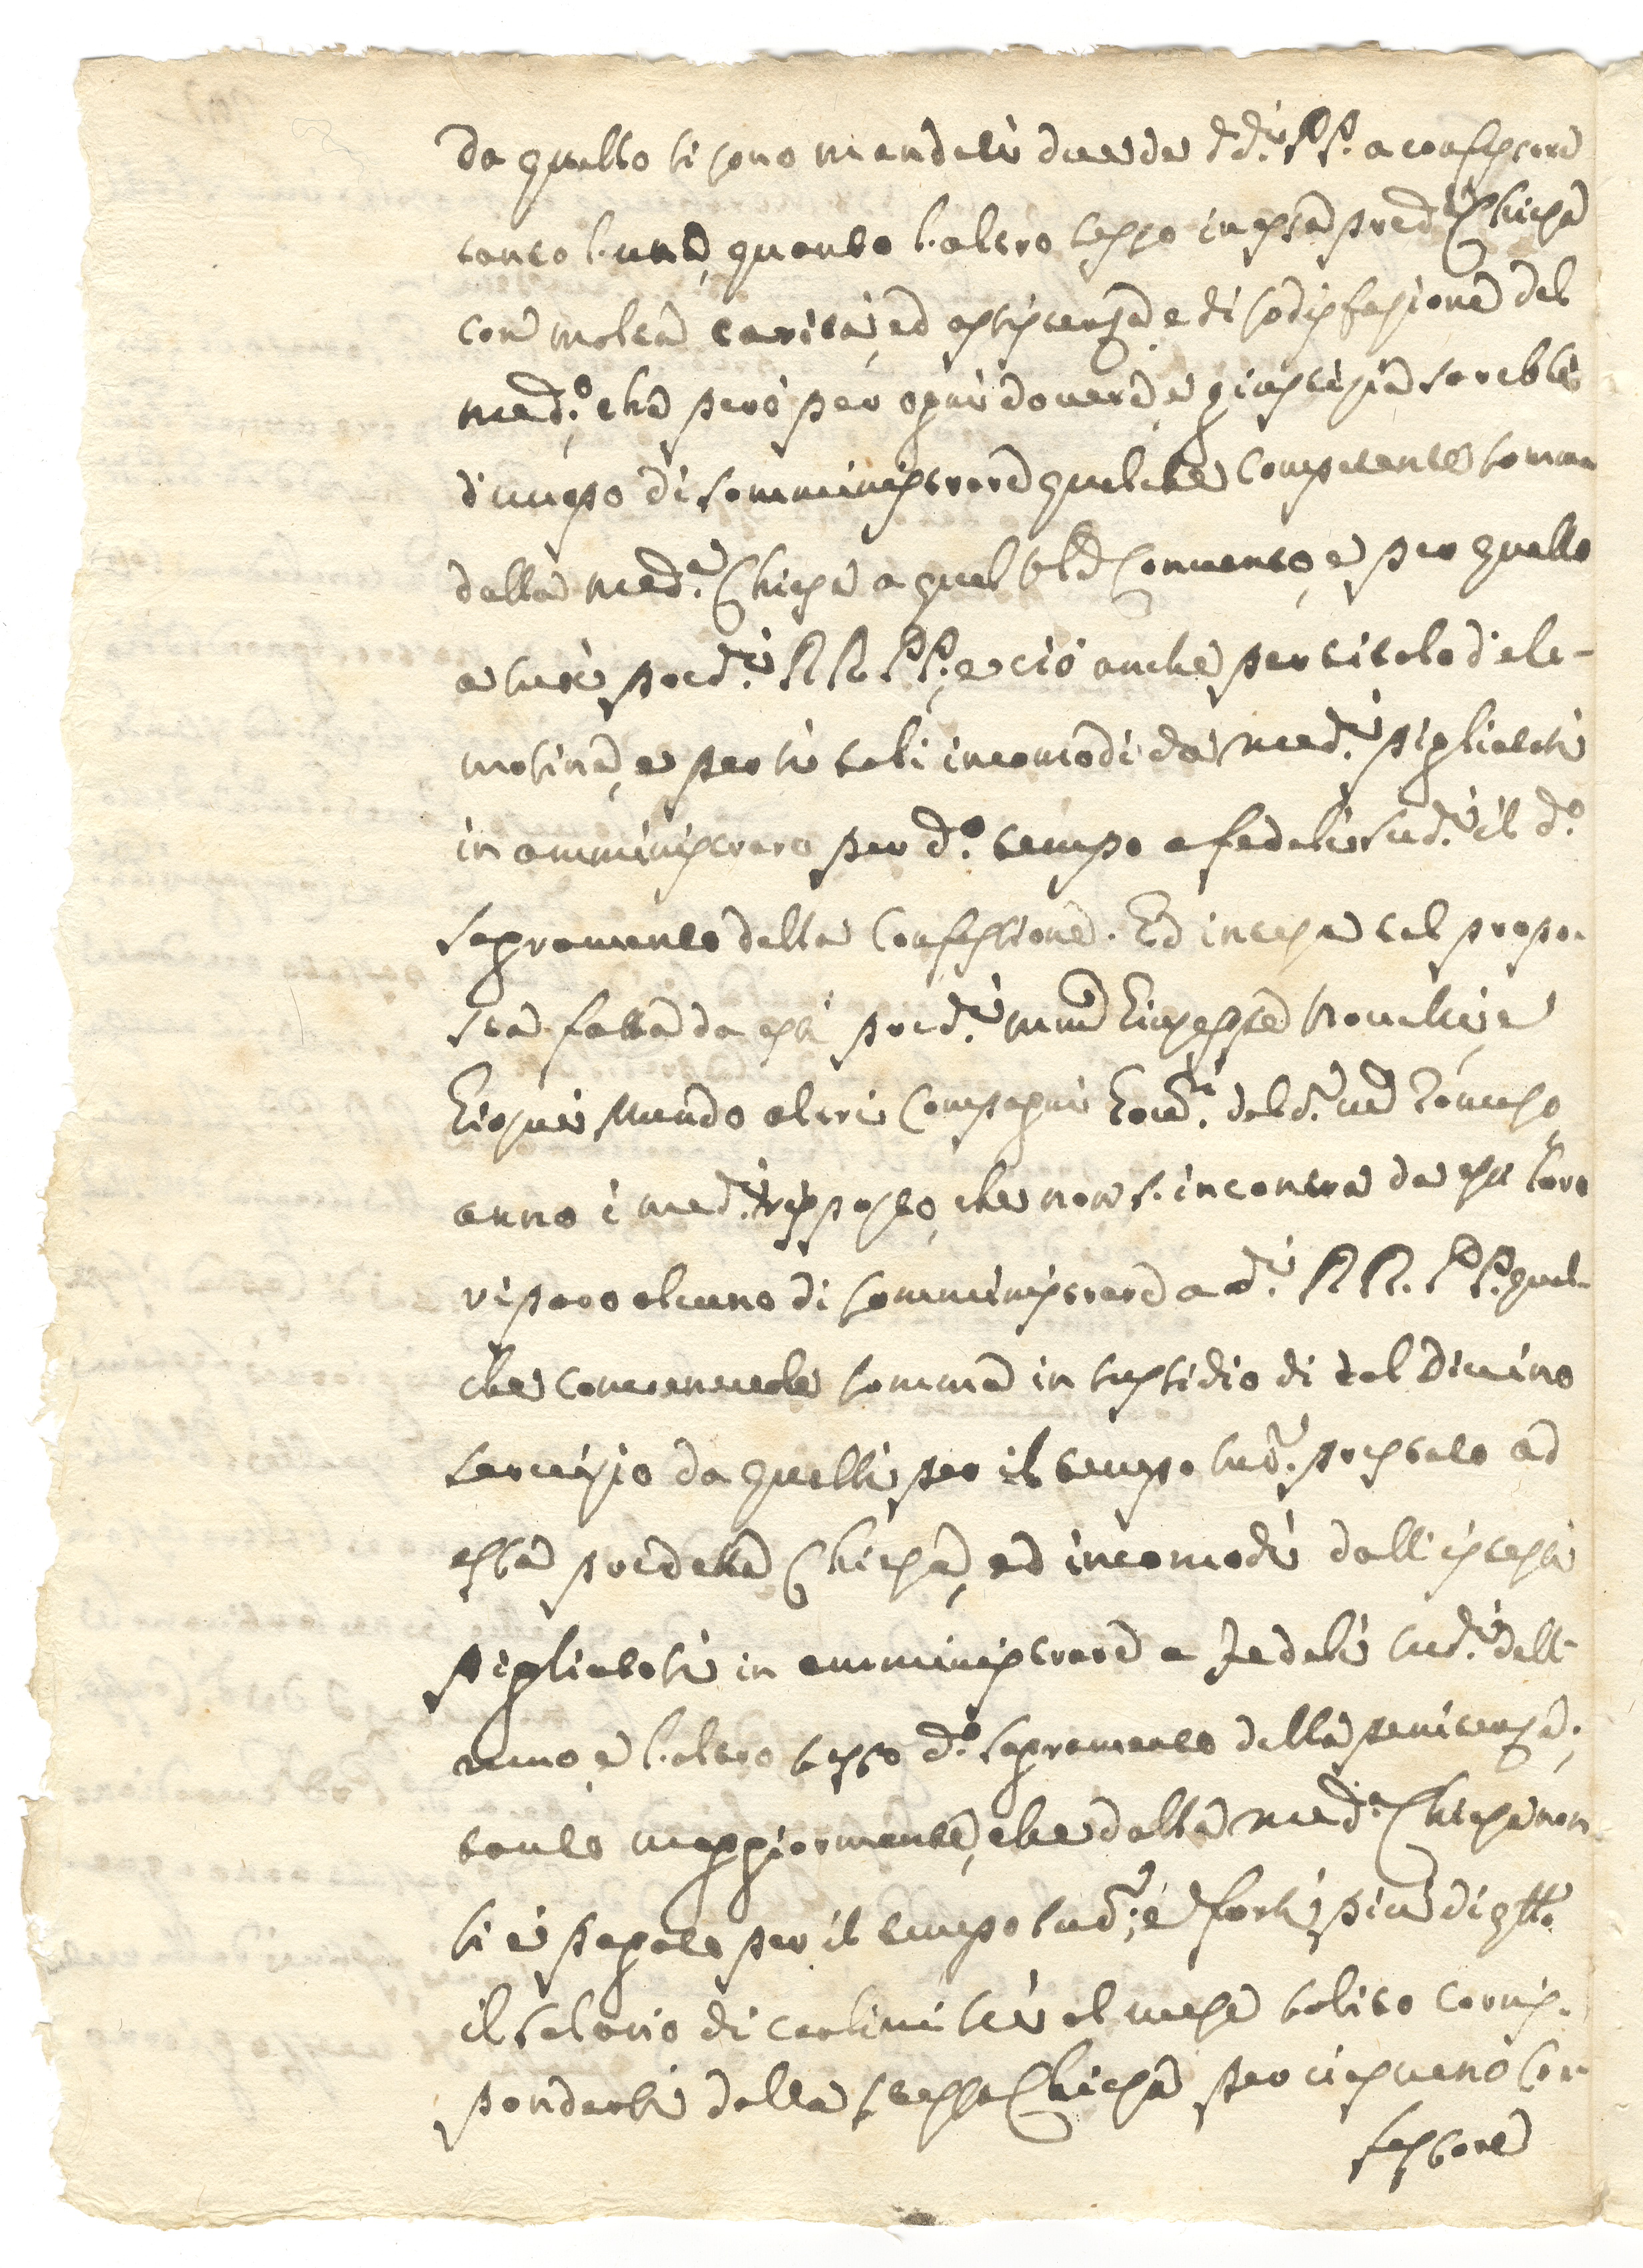 da quello si sono mandati due de d.di PP. a confessare
tanto l'uno, quanto l'altro sesso in essa pred.a Chiesa
con molta carità, ed assistenza, e di sodisfazione del
med.o, che però per ogni dovere, e giustizia sarebbe
d'uopo di somministrare qualche competente somma
dalla med.a Chiesa a quel Ven.le Convento, e per quello
a suoi pred.i RR. PP., e ciò anche per titolo d'ele-
mosina, e per li tali incomodi da med.i pigliatisi
in amministrare per d.o tempo a fedeli sud.i il d.o
Sagramento della Confessione. Ed intesa tal propo-
sta fatta da essi pred.i Giuseppe e
altri Compagni Gov.ri del d.
anno i med.i risposto, che non s'incontra da essi loro
riparo alcuno di somministrare a d.i RR. PP. qual-
che convenevole somma in sussidio di tal Divino
servizio da quelli per il tempo sud.o prestato ad
essa predetta Chiesa, ed incomodi dall'istessi
pigliatosi in amministrare a fedeli sud.i dell'
uno, e l'altro sesso d.o Sagramento della penitenza;
tanto maggiormente, che dalla med.a Chiesa non
si è pagato per il tempo sud.o, e forsi più di q.llo
il salario di carlini sei al mese solito corris-
pondersi dalla stessa Chiesa per ciascuno Con-
fessore